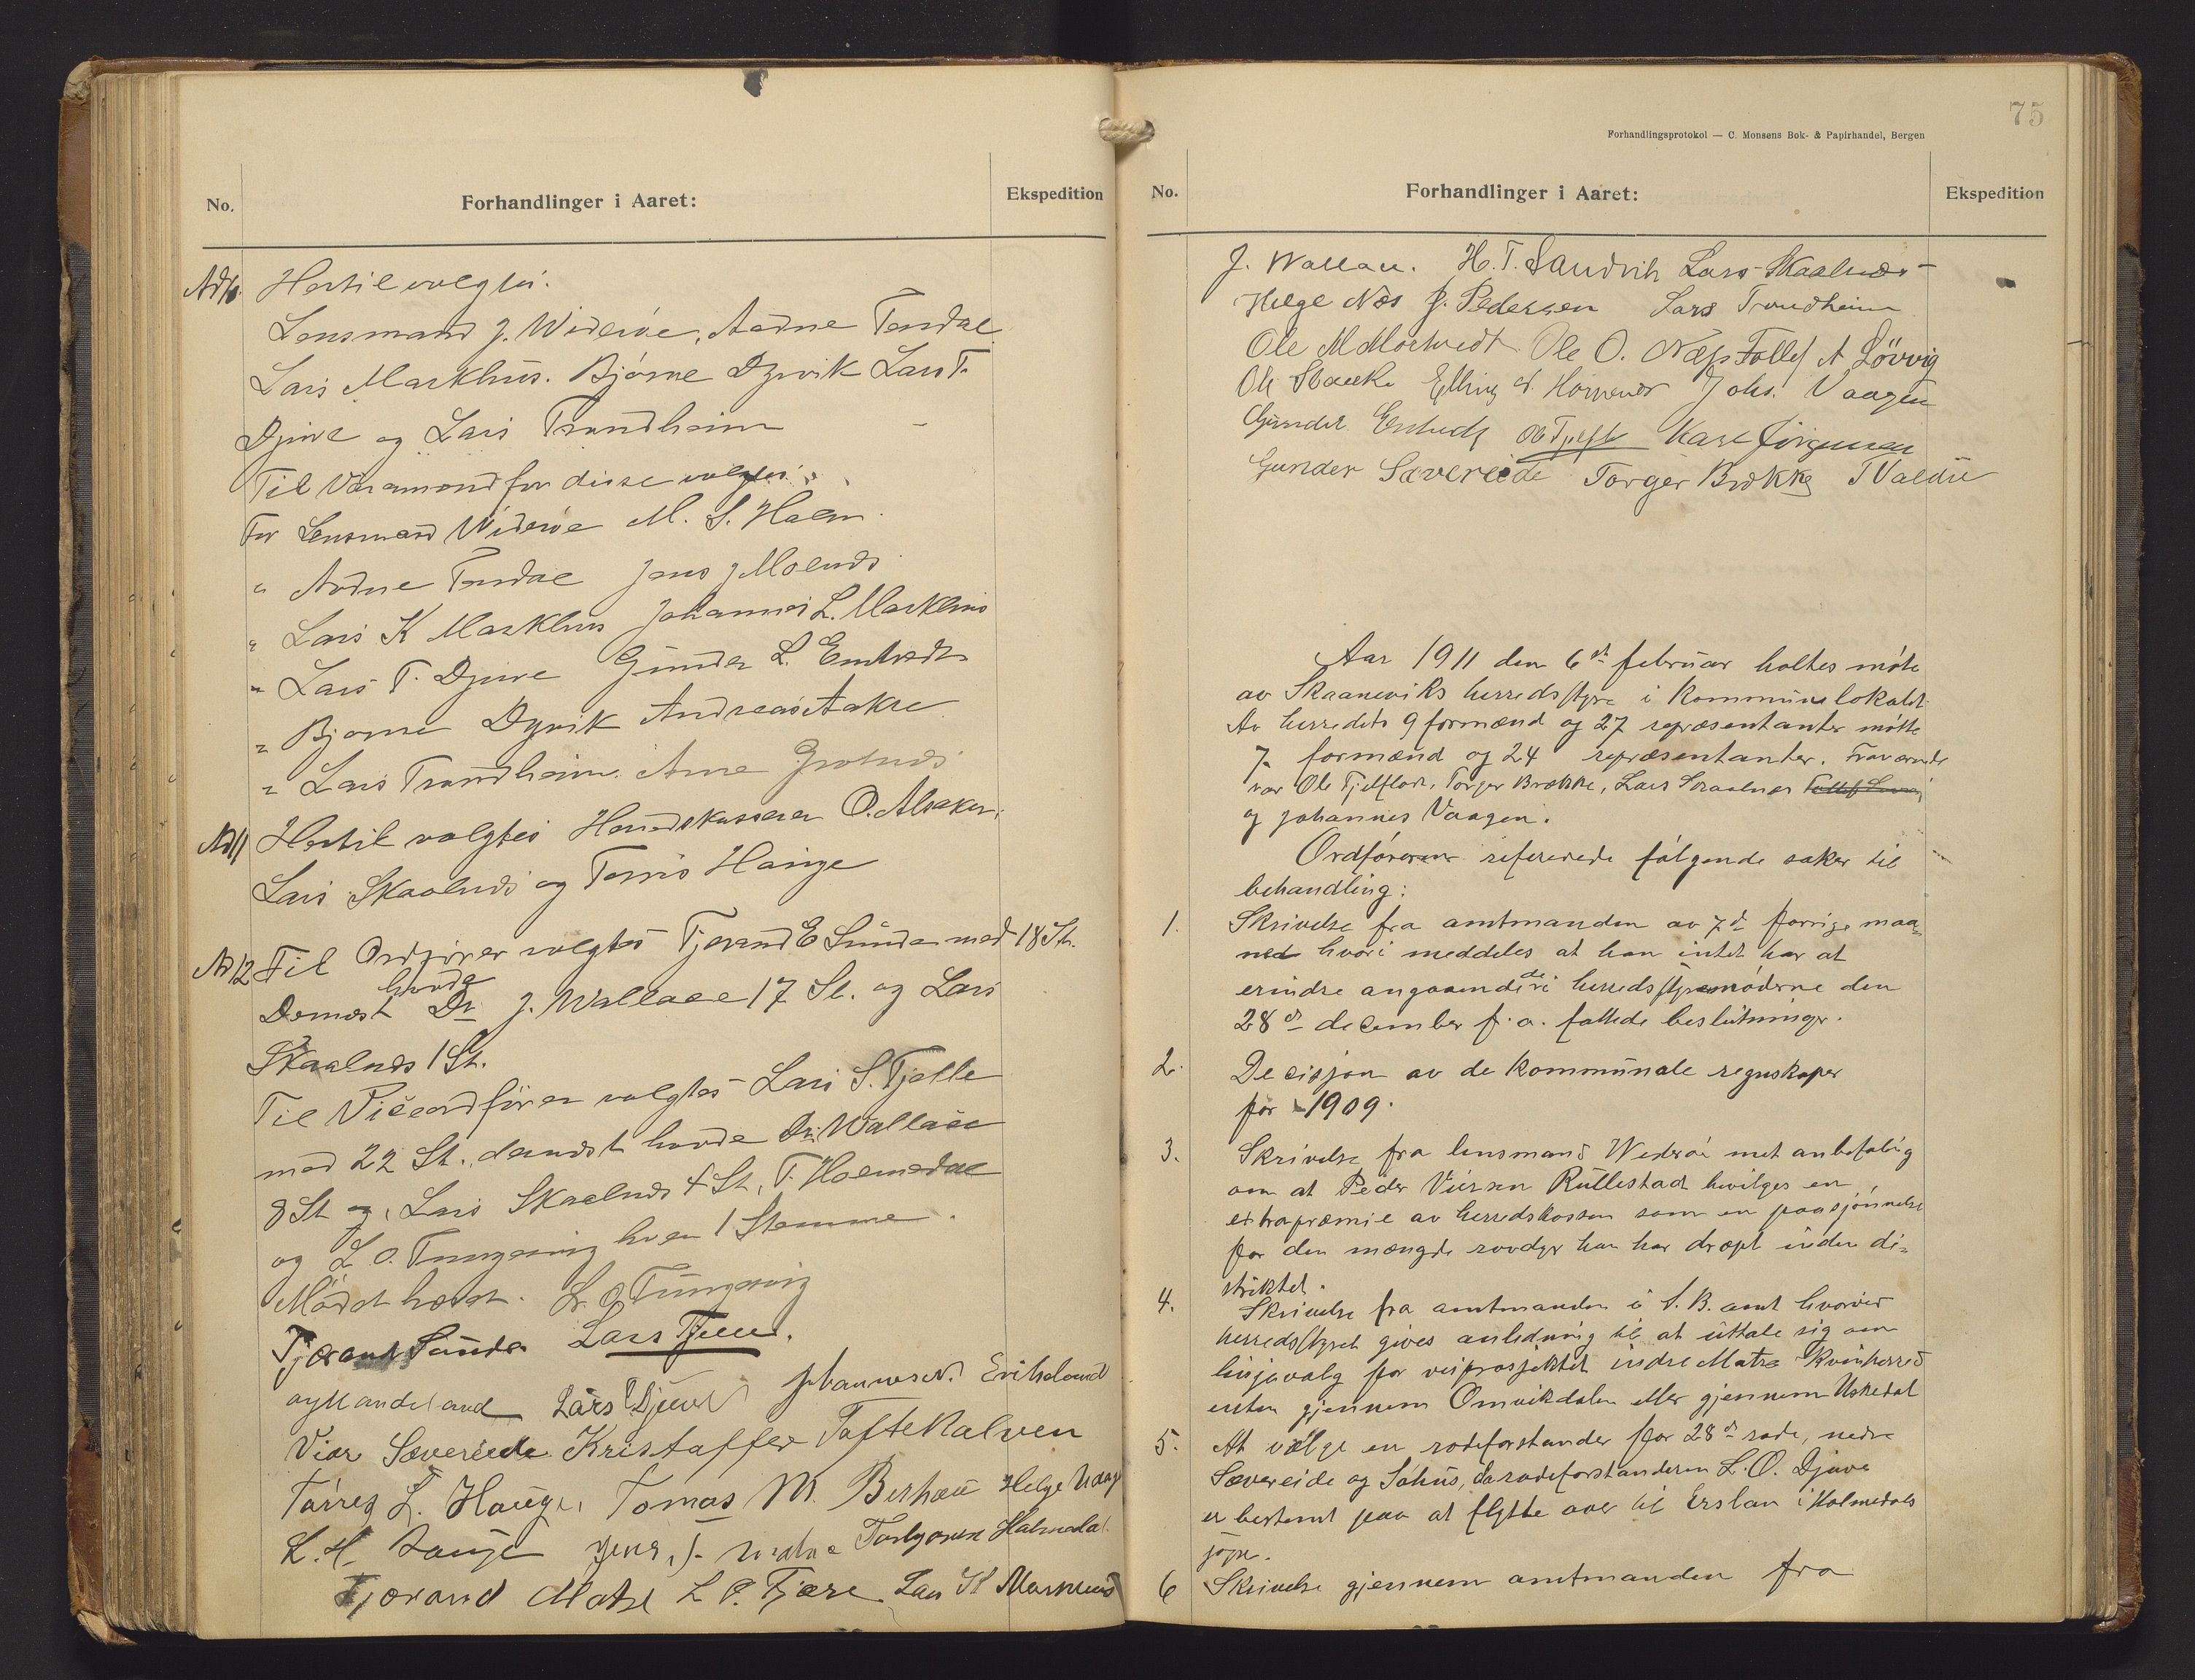 No.
Forhandlinger i Aaret:
Ekspedition
Ad 10. Hertil valgtes:
Lensmand J. Widerøe, Aadne Tendal
Lars Markhus. Bjørne Dyrvik Lars T.
Djuve og Lars Trondheim
Til Varamænd for disse valgtes:
For Lensmand Widerøe M. S. Halm
" Aadne Tendal Jens J Molnes
" Lars K Markhus Johannes L. Markhus
" Lars T. Djuve Gunder L. Emhvedt
" Bjørne Dyrvik Andreas Aakre
" Lars Trondheim. Arne
Ad 11 Hertil valgtes Herredskasserer O. Alsaker,
Lars Skaalnes og Torris Hauge
Ad 12 Til Ordfører valgtes Tjerand E Sunde med 18 St.
Dernæst havde Dr J. Wallace 17 St. og Lars
Skaalnes 1 St.
Til Viceordfører valgtes Lars S. Fjelle
med 22 St., dernæst havde Dr. Wallace
8 St og, Lars Skaalnes 4 St, T. Holmedal
og L. O. Tungesvig hver 1 Stemme.
Mødet hævet. L. O Tungesvig
Tjerand Sunde Lars Fjelle.
Lars Djuve Johannes Eriksland
Vier Sævereide Kristaffer Toftekalven
Tørres L. Hauge, Tomas M. Berhau Helge
L. H. Hauge Jens Torbjørn Holmedal
Tjerand Matre L P. Fjære Lars K Markhus
75
Forhandlingsprotokol — C. Monsens Bok- & Papirhandel, Bergen
No.
Forhandlinger i Aaret:
Ekspedition
J. Wallace. H. T. Sandvik Lars Skaalnes
Helge Næs J. Pedersen Lars Trondheim
Ole M Mortvedt Ole O. Næs Tollef A Løvvig
Ole Elling Joh. Vaagen
Gunder Emhvedt Karl Jørgensen
Gunder Sævereide Torger Brække
Aar 1911 den 6te februar holtes møte
av Skaaneviks herredsstyre i Kommunelokalet
Av herredets 9 formænd og 27 repræsentanter møtte
7 formænd og 24 repræsentanter. Fraværende
var Ole Fjelflot, Torger Brække, Lars Skaalnes
og Johannes Vaagen.
Ordføreren refererede følgende saker til
behandling:
1. Skrivelse fra amtmanden av 7de forrige maa-
ned hvori meddeles at han intet har at
erindre angaaende de i herredsstyremøderne den
28de december f. a. fattede beslutninger.
2. Decisjon av de kommunale regnskaper
for 1909.
3. Skrivelse fra lensmand Widerøe met anbefaling
om at Peder Viersen Rullestad bevilges en
extrapræmie av herredskassen som en paaskjønnelse
for den mængde rovdyr han har dræpt inden di-
striktet.
4. Skrivelse fra amtmanden i S. B. amt hvorved
herredsstyret gives anledning til at uttale sig om
linjevalg for veiprosjektet indre Matre Kvinherred
enten gjennem Omvikdalen eller gjennem Uskedal
5. At vælge en rodeforstander for 28de rode, nedre
Sævereide og Sjøhus, da rodeforstanderen L. O. Djuve
er bestemt paa at flytte over til Ersland i Holmedals
sogn.
6 Skrivelse gjennem amtmanden fra